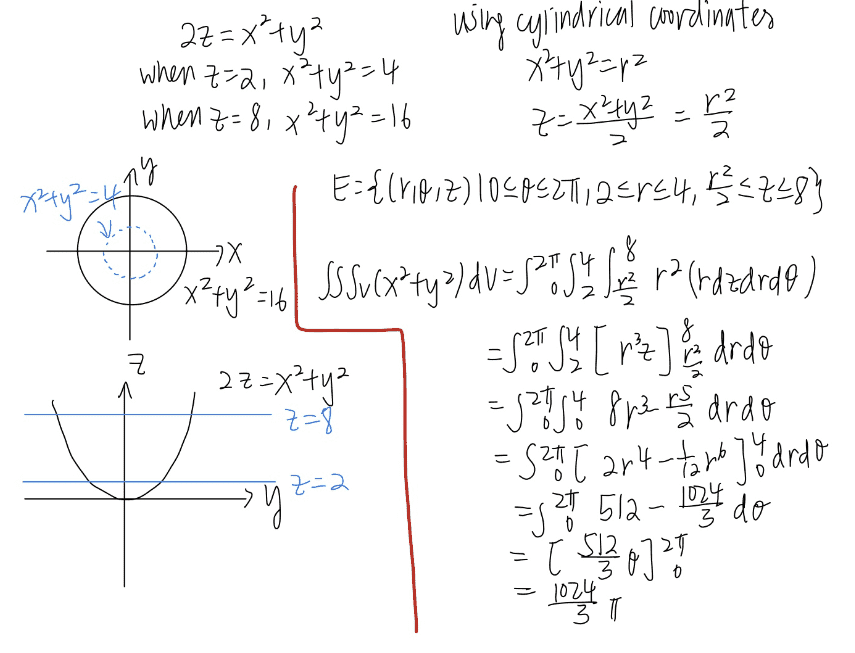 2z = x²+y²
when z=2, x²+y²=4
when z=8, x²+y²=16
using cylindrical coordinates
x²+y²=r²
z = \frac{x²+y²}{2} = \frac{r²}{2}
y
x²+y²=4
x
x²+y²=16
z
2z=x²+y²
z=8
z=2
y
E={(r,θ,z)|0≤θ≤2π, 2≤r≤4, \frac{r²}{2}≤z≤8}
∭_V(x²+y²)dV = ∫_0^{2π}∫_2^4∫_{\frac{r²}{2}}^8 r²(rdzdrdθ)
= ∫_0^{2π}∫_2^4 [r³z]_{\frac{r²}{2}}^8 drdθ
= ∫_0^{2π}∫_0^4 8r³-\frac{r^5}{2} drdθ
= ∫_0^{2π} [2r⁴-\frac{1}{12}r⁶]_0^4 drdθ
= ∫_0^{2π} 512-\frac{1024}{3} dθ
= [\frac{512}{3}θ]_0^{2π}
= \frac{1024}{3}π